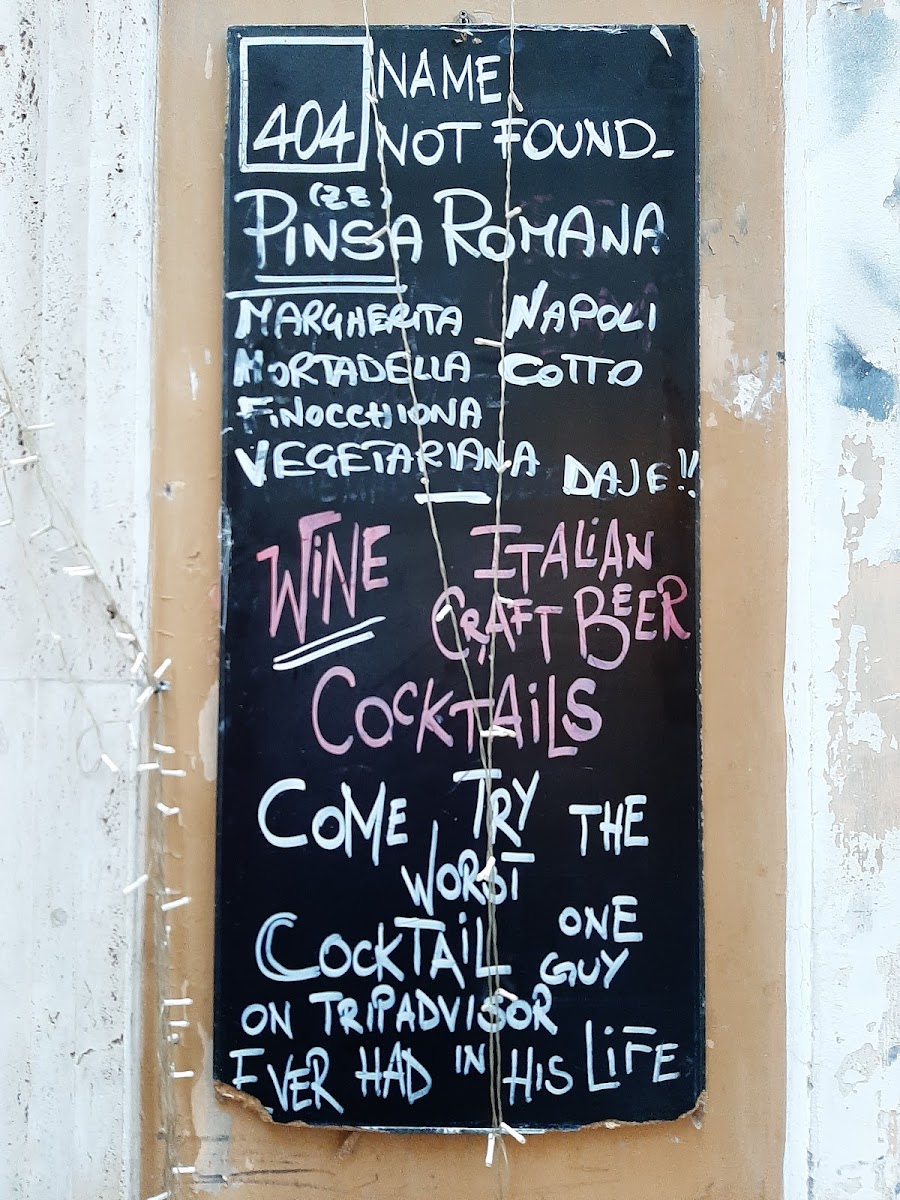 404 NAME
NOT FOUND_
(ZZ)
PINSA ROMANA
MARGHERITA NAPOLI
MORTADELLA COTTO
FINOCCHIONA
VEGETARIANA DAJE!!
WINE ITALIAN
CRAFT BEER
COCKTAILS
COME TRY THE
WORST
COCKTAIL ONE
GUY
ON TRIPADVISOR
EVER HAD IN HIS LIFE